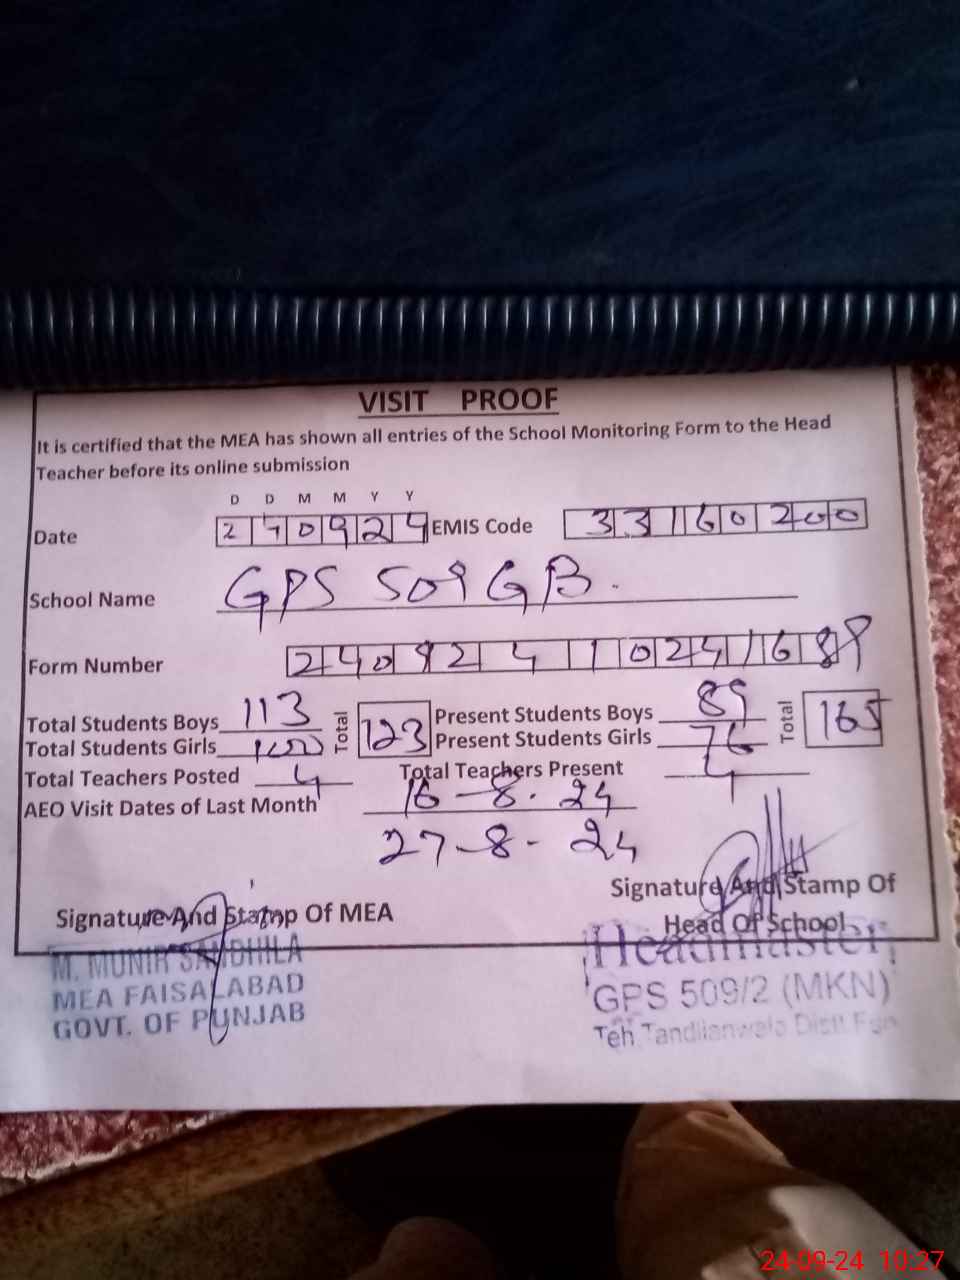 VISIT PROOF
It is certified that the MEA has shown all entries of the School Monitoring Form to the Head
Teacher before its online submission
D D M M Y Y
Date 240924 EMIS Code 33160200
School Name GPS 509 GB.
Form Number 2409241024168
Total Students Boys 113 Total 123 Present Students Boys 89 Total 165
Total Students Girls Present Students Girls 76
Total Teachers Posted 4 Total Teachers Present 4
AEO Visit Dates of Last Month 16-8-24
27-8-24
Signature And Stamp Of MEA
Signature And Stamp Of
Head Of School
M. MUNIR SANDHILA
MEA FAISALABAD
GOVT. OF PUNJAB
Headmaster
GPS 509/2 (MKN)
Teh Tandlianwala Distt Fsn
24-09-24 10:27